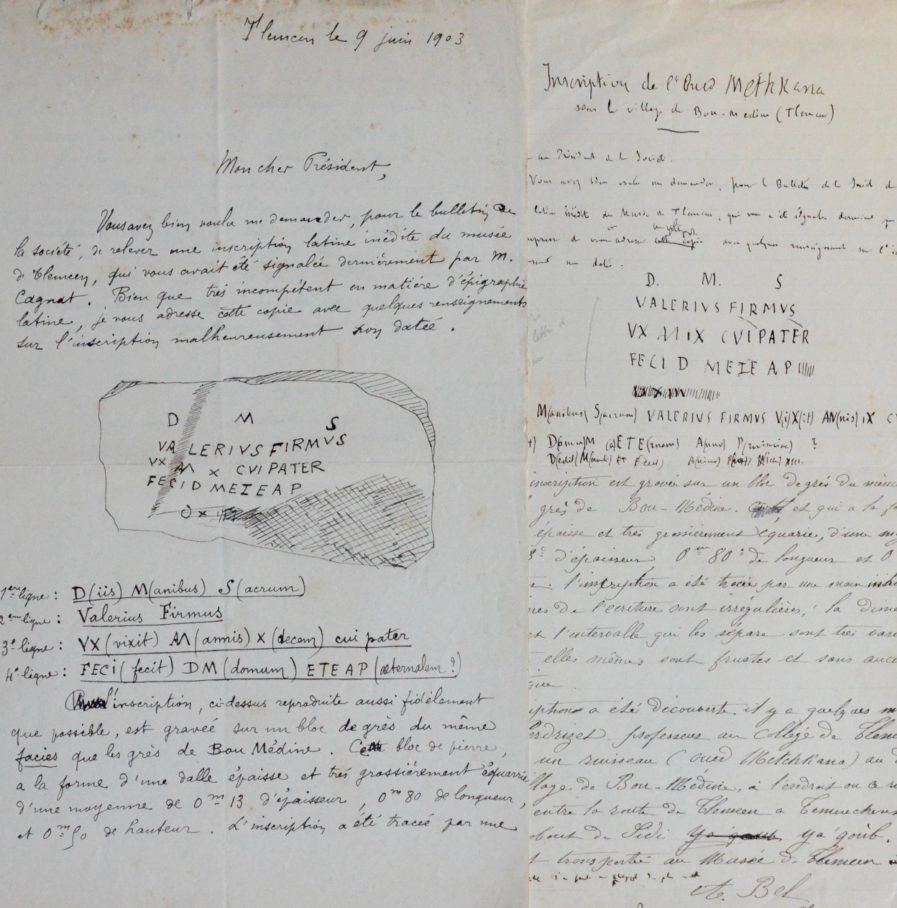 Tlemcen le 9 juin 1903
Mon cher Président,
Vous avez bien voulu me demander, pour le bulletin de
la société, de relever une inscription latine inédite du musée
de Tlemcen, qui vous avait été signalée dernièrement par M.
Cagnat. Bien que très incompétent en matière d'épigraphie
latine, je vous adresse cette copie avec quelques renseignements
sur l'inscription malheureusement non datée.
D M S
VALERIVS FIRMVS
VX M X CVI PATER
FECI D MEIEAP
1ère ligne : D(iis) M(anibus) S(acrum)
2ème ligne : Valerius Firmus
3e ligne : VX (vixit) M (annis) X (decem) cui pater
4e ligne : FECI (fecit) DM (domum) ETEAP (æternalem ?)
l'inscription, ci-dessus reproduite aussi fidèlement
que possible, est gravée sur un bloc de grès du même
facies que les grès de Bou Médine. Ce bloc de pierre,
a la forme d'une dalle épaisse et très grossièrement équarrie
d'une moyenne de 0m 13 d'épaisseur, 0m 80 de longueur,
et 0m 50 de hauteur. L'inscription a été tracée par une
Inscription de l'Oued Methkana
sous le village de Bou-Medine (Tlemcen)
au Président de la Société
Vous avez bien voulu me demander, pour le Bulletin de la Société de
inédite du Musée de Tlemcen, qui vous a été signalée
D. M. S
VALERIVS FIRMVS
VX M IX CVI PATER
FECI D MEIE A P
M(anibus) S(acrum) VALERIVS FIRMVS V(i)X(it) AN(nis) IX
D(omu)M (a)ETE(rnam) A(nno) P(rovinciae) ?
inscription est gravée sur un bloc de grès du même
grès de Bou-Médine. et qui a la
épaisse et très grossièrement équarie, d'une
d'épaisseur 0m 80 de longueur et 0
l'inscription a été tracée par une main
de l'écriture sont irrégulières ; la
l'intervalle qui les sépare sont très
elles mêmes sont frustes et sans
a été découverte, il y a quelques
professeur au Collège de
un ruisseau (oued Metchkana) au
de Bou-Médine, à l'endroit où
entre la route de Tlemcen à
de Sidi ya'goub.
transportée au Musée de Tlemcen
A. Bel